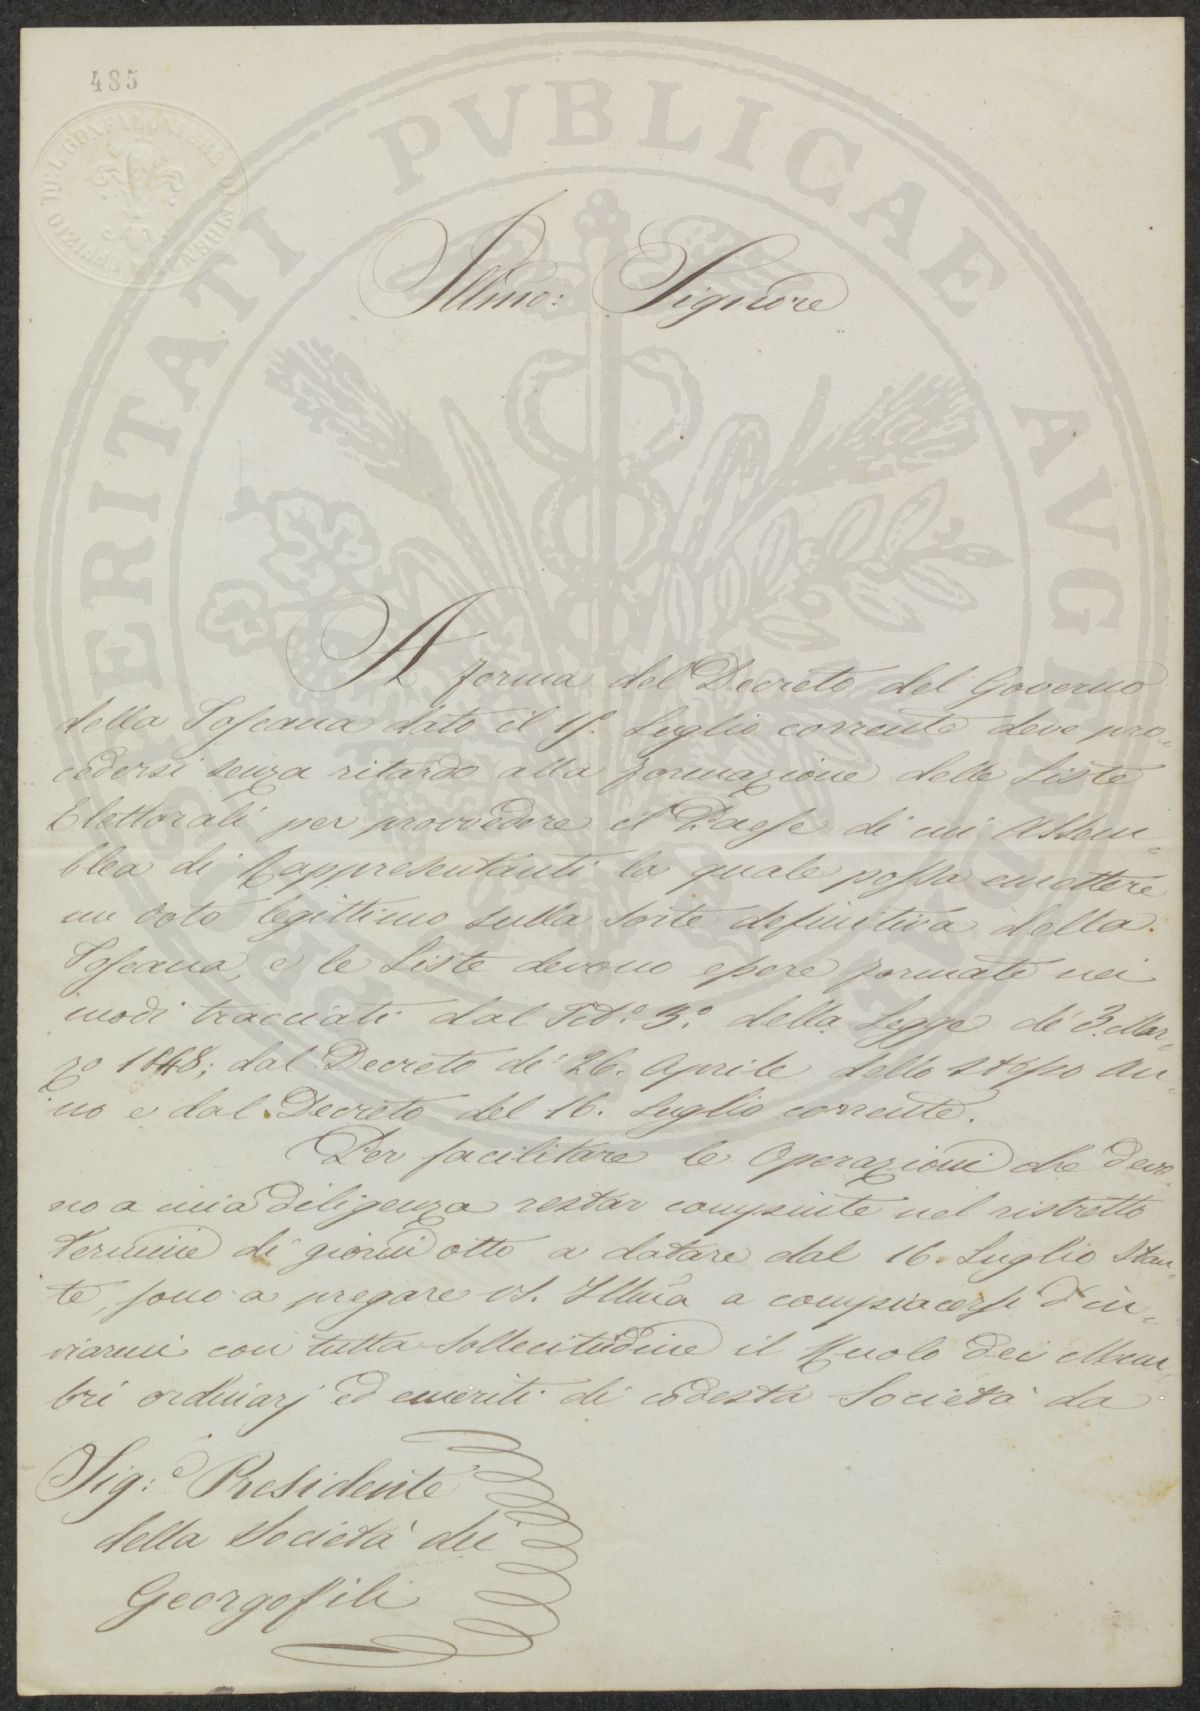 485
UFFIZIO DEL GONFALONIERE DI
PROSPERITATI PVBLICAE AVGENDAE
Illmo: Signore
A forma del Decreto del Governo
della Toscana dato il 15. Luglio corrente deve pro-
cedersi senza ritardo alla formazione delle Liste
Elettorali per provvedere il Paese di un Assem-
blea di Rappresentanti la quale possa emettere
un voto legittimo sulla sorte definitiva della
Toscana, e le Liste devono essere formate nei
modi tracciati dal Tito. 3.o della Legge de' 3. Mar-
zo 1848; dal Decreto de' 26. Aprile dello stesso An-
no e dal Decreto del 16. Luglio corrente.
Per facilitare le Operazioni che devo-
no a mia diligenza restar compiute nel ristretto
termine di giorni otto a datare dal 16. Luglio stan-
te, sono a pregare VS. Illma a compiacersi d'in-
viarmi con tutta sollecitudine il Ruolo dei Mem-
bri ordinarj ed emeriti di codesta Società da
Sig:e Presidente
della Società dei
Georgofili